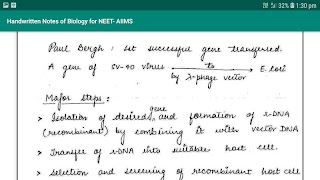 32% 1:30 pm
Handwritten Notes of Biology for NEET- AIIMS
Paul Bergh : 1st successful gene transferred.
A gene of SV-40 virus to E.coli
by λ-phage vector
Major steps :
gene
> Isolation of desired and formation of r-DNA
(recombinant) by combining it with vector DNA
> Transfer of r-DNA into suitable host cell.
> Selection and screening of recombinant host cell